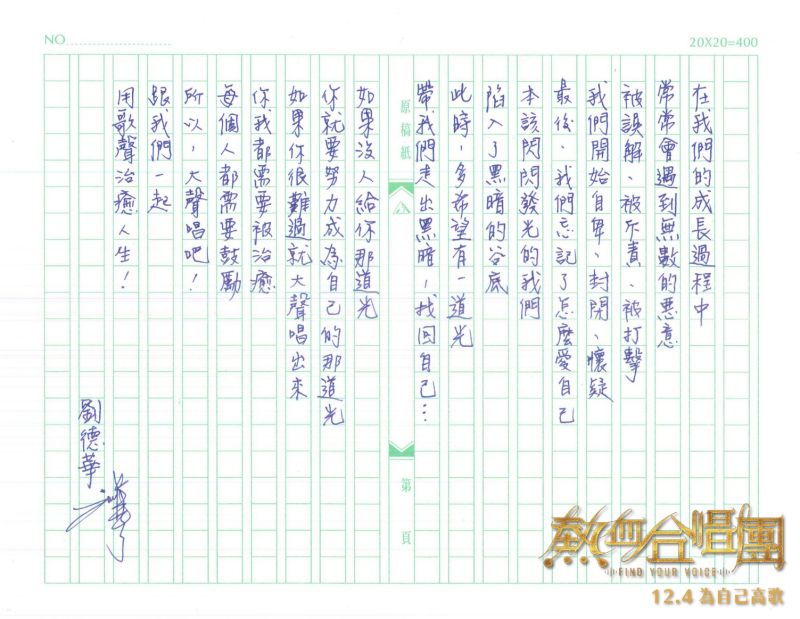 NO.
20X20=400
在我們的成長過程中
常常會遇到無數的惡意
被誤解、被斥責、被打擊
我們開始自卑、封閉、懷疑
最後、我們忘記了怎麼愛自己
本該閃閃發光的我們
陷入了黑暗的谷底
此時，多希望有一道光
帶我們走出黑暗，找回自己…
原稿紙
第 頁
如果沒人給你那道光
你就要努力成為自己的那道光
如果你很難過就大聲唱出來
你我都需要被治癒
每個人都需要鼓勵
所以，大聲唱吧！
跟我們一起
用歌聲治癒人生！
劉德華
熱血合唱團
FIND YOUR VOICE
12.4 為自己高歌